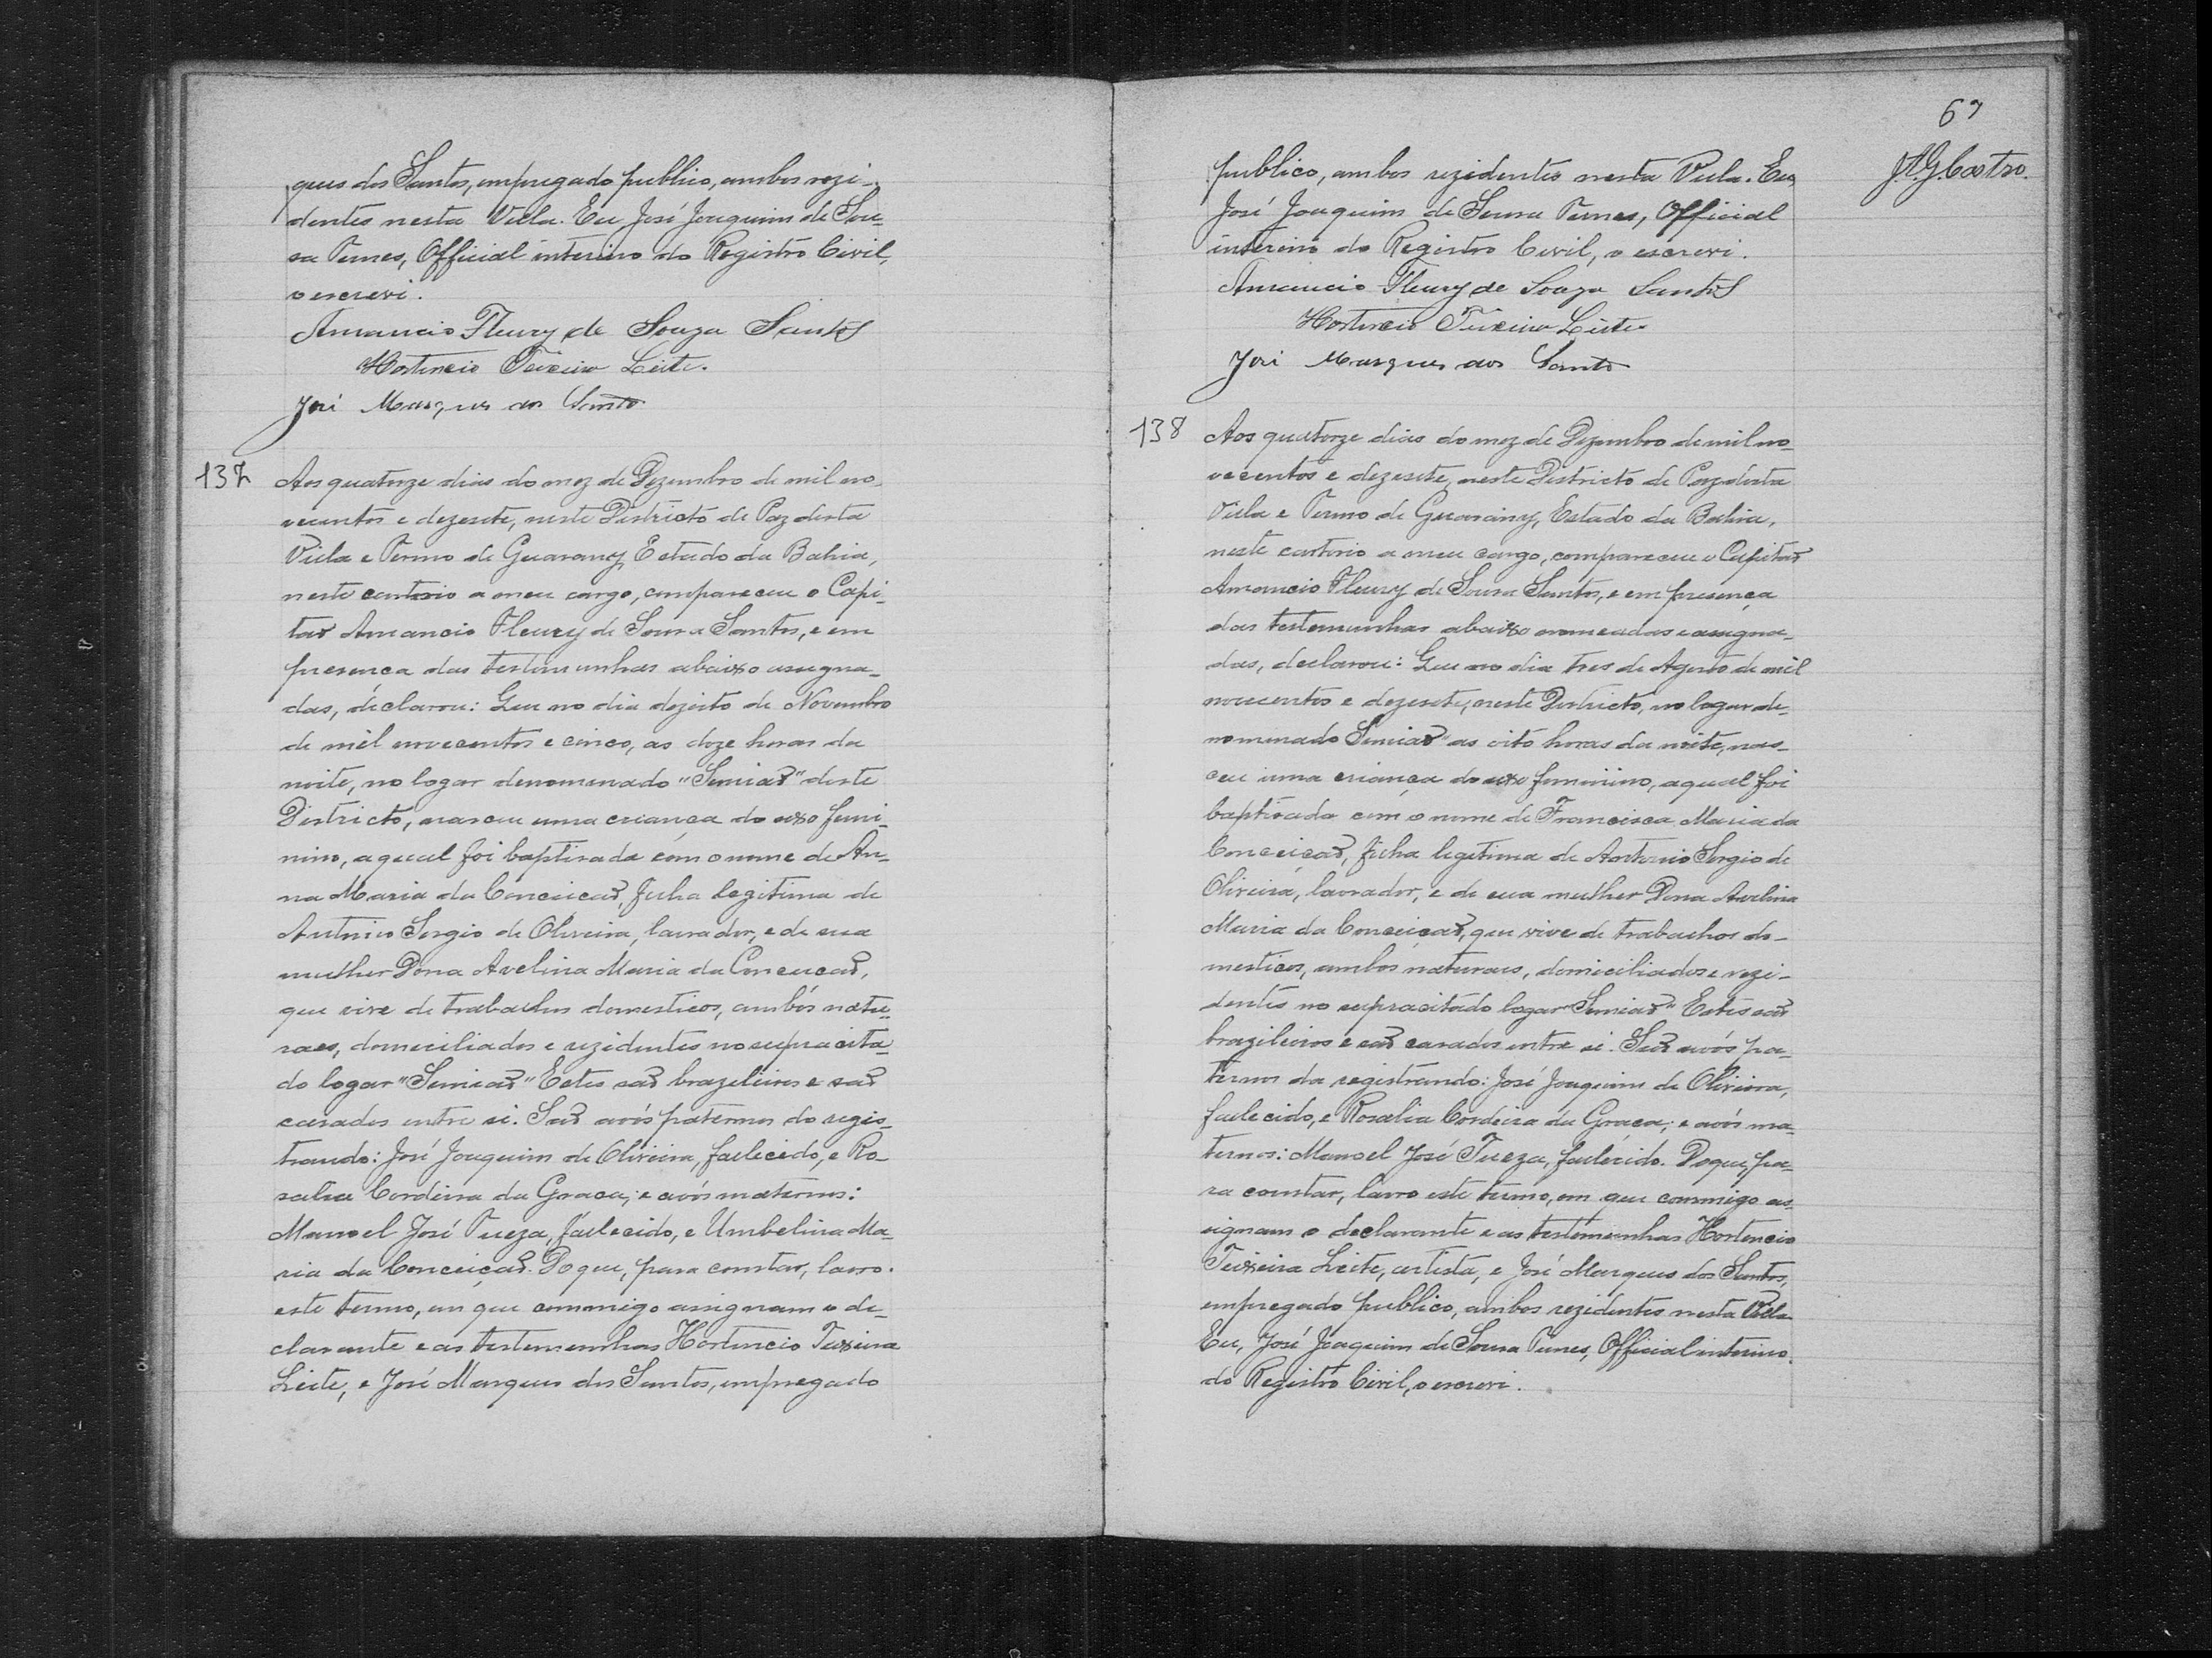 ques dos Santos, empregado publico, ambos rezi-
dentes nesta Villa. Eu José Joaquim de Sou-
sa Tunes, Official interino do Registro Civil,
o escrevi.
Amancio Fleury de Souza Santos
Hortencio Teixeira Leite.
José Marques dos Santos
137
Aos quatorze dias do mez de Dezembro de mil no-
vecentos e dezesete, neste Districto de Paz desta
Villa e Termo de Guarany, Estado da Bahia,
neste cartorio a meu cargo, compareceu o Capi-
tão Amancio Fleury de Sousa Santos, e em
presença das testemunhas abaixo assigna-
das, declarou: Que no dia dezoito de Novembro
de mil novecentos e cinco, as doze horas da
noite, no logar denomenado "Semião" deste
Districto, nasceu uma criança do sexo femi-
nino, a qual foi baptisada com o nome de An-
na Maria da Conceição, filha legitima de
Antonio Sergio de Oliveira, lavrador, e de sua
mulher Dona Avelina Maria da Conceicão,
que vive de trabalhos domesticos, ambos natu-
raes, domeciliados e rezidentes no supracita-
do logar "Semião" Estes são brazileiros e são
casados entre si. São avós paternos do regis-
trando: José Joaquim de Oliveira, fallecido, e Ro-
salia Cordeira da Graca; e avós maternos:
Manoel José , fallecido, e Umbelina Ma-
ria da Conceição. Do que, para constar, lavro
este termo, em que commigo assignam o de-
clarante e as testemunhas Hortencio Teixeira
Leite, e José Marques dos Santos, empregado
67
J.A.G. Castro.
publico, ambos rezidentes nesta Villa. Eu,
José Joaquim de Sousa Tunes, Official
interino do Registro Civil, o escrevi.
Amancio Fleury de Souza Santos
Hortencio Teixeira Leite
José Marques dos Santos
138
Aos quatorze dias do mez de Dezembro de mil no-
vecentos e dezesete, neste Districto de Paz desta
Villa e Termo de Guarany, Estado da Bahia,
neste cartorio a meu cargo, compareceu o Capitão
Amancio Fleury de Sousa Santos, e em presença
das testemunhas abaixo nomeadas e assigna-
das, declarou: Que no dia tres de Agosto de mil
novecentos e dezesete, neste Districto, no logar de-
nomenado Semião" as oito horas da noite, nas-
ceu uma criança do sexo feminino, a qual foi
baptisada com o nome de Francisca Maria da
Conceição, filha legitima de Antonio Sergio de
Oliveira, lavrador, e de sua mulher Dona Avelina
Maria da Conceição, que vive de trabalhos do-
mesticos, ambos naturaes, domiciliados e rezi-
dentes no supracitado logar "Semião" Estes são
brazileiros e são casados entre si. São avós pa-
ternos da registrando: José Joaquim de Oliveira,
fallecido, e Rosalia Cordeira da Graca; e avós ma-
ternos: Manoel José , fallecido. Do que, pa-
ra constar, lavro este termo, em que commigo as-
signam o declarante e as testemunhas Hortencio
Teixeira Leite, artista, e José Marques dos Santos,
empregado publico, ambos rezidentes nesta Villa
Eu, José Joaquim de Sousa Tunes, Official interino
do Registro Civil, o escrevi.